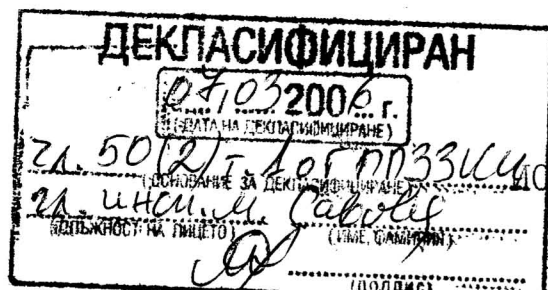 ДЕКЛАСИФИЦИРАН
07.03.2006 г.
(ДАТА НА ДЕКЛАСИФИЦИРАНЕ)
чл. 50(2) т. 1 от ППЗЗКИ
(ОСНОВАНИЕ ЗА ДЕКЛАСИФИЦИРАНЕ)
гл. инсп. М.
(ДЛЪЖНОСТ НА ЛИЦЕТО) (ИМЕ, ФАМИЛИЯ)
(ПОДПИС)